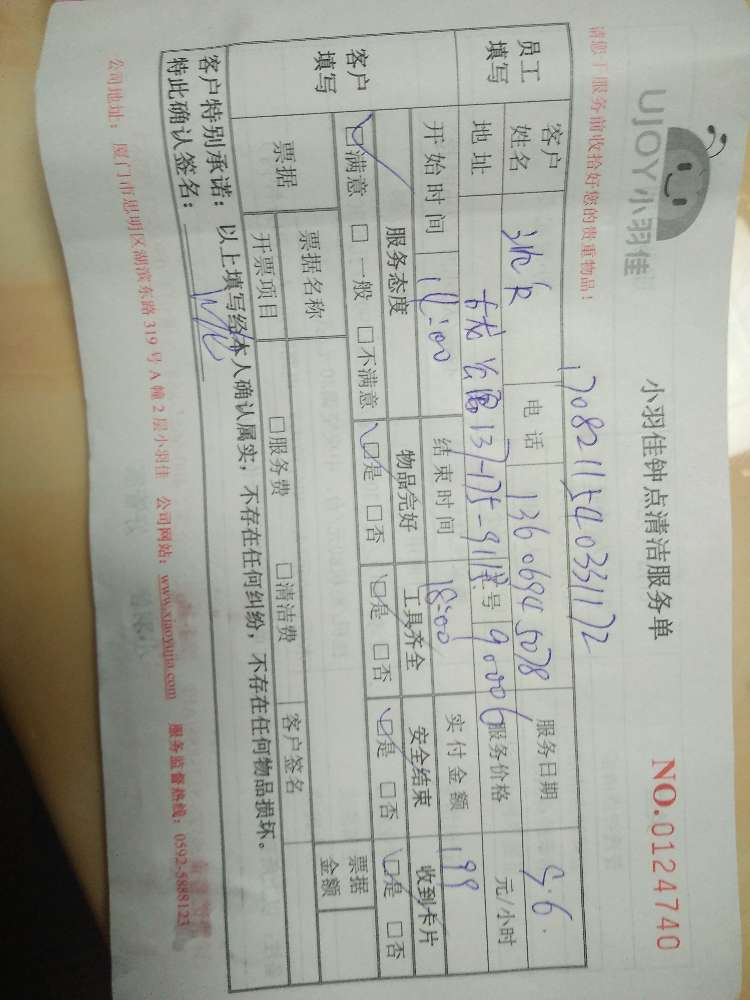 UJOY小羽佳
小羽佳钟点清洁服务单
NO.0124740
请您于服务前收拾好您的贵重物品！
1708211540331172
员工填写
客户姓名
电话 13606945078
服务日期 5.6.
地址 137-175-911
员工号 90006
服务价格 元/小时
客户填写
开始时间 14:00
结束时间 18:00
实付金额 199
服务态度 物品完好 工具齐全 安全结束 收到卡片
☑满意 □一般 □不满意 ☑是 □否 ☑是 □否 ☑是 □否 ☑是 □否
票据 票据名称 客户签名 票据金额
开票项目 □服务费 □清洁费
客户特别承诺：以上填写经本人确认属实，不存在任何纠纷，不存在任何物品损坏。
特此确认签名：
公司地址：厦门市思明区湖滨东路319号A幢2层小羽佳 公司网站：www.xiaoyujia.com 服务监督热线：0592-5888123